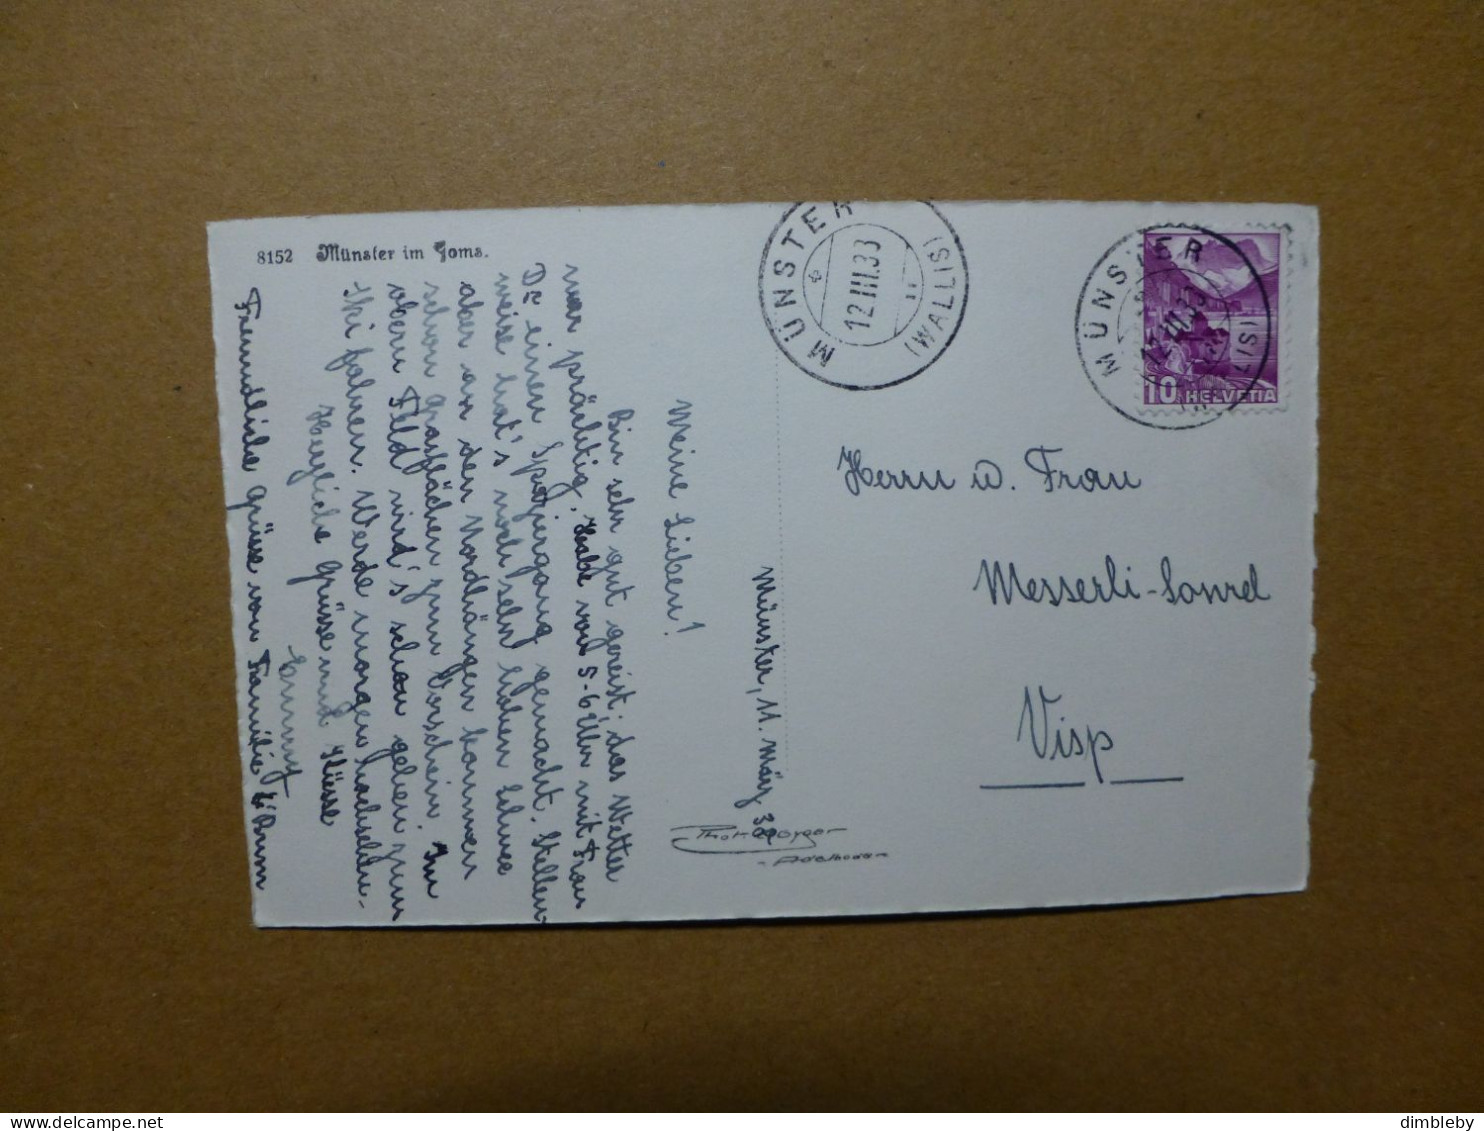 8152 Münster im Goms.
MÜNSTER
12.III.33
(WALLIS)
MÜNSTER
10 HELVETIA
Münster, 11. März 33
Meine Lieben!
Bin sehr gut gereist; das Wetter
war prächtig. Habe von 5-6 Uhr mit Frau
Dr. einen Spaziergang gemacht. Stellen-
weise hat's noch sehr hohen Schnee
aber an den Nordhängen kommen
schon Grasflächen zum Vorschein. Im
obern Feld wird's schon gehen zum
Ski fahren. Werde morgen hochsehn.
Herzliche Grüsse und Küsse
Emmy
Freundliche Grüsse von Familie
Herrn u. Frau
Messerli-
Visp
Phot. Gyger
Adelboden
dimbleby
www.delcampe.net